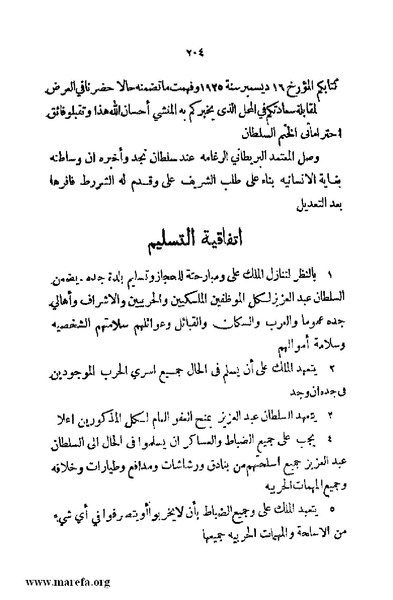 ٢٠٤
كتابكم المؤرخ ١٦ ديسمبر سنة ١٩٢٥ وفهمت ما تضمنه حالا حضرنا في العرض
لمقابلة سعادتكم في المحل الذي يخبركم به المنشي أحسان الله هذا وتقبلو فائق
احتراماتي الختم السلطان
وصل المعتمد البريطاني الرغامه عند سلطان نجد وأخبره ان وساطته
بغاية الانسانيه بناء على طلب الشريف على وقدم له الشروط فاقرها
بعد التعديل
اتفاقية التسليم
١ بالنظر لتنازل الملك على ومبارحته للحجاز وتسليم بلدة جده يضمن
السلطان عبد العزيز لكل الموظفين الملكيين والحربيين والاشراف وأهالي
جده عموما والعرب والسكان والقبائل وعوائلهم سلامتهم الشخصيه
وسلامة أموالهم
٢ يتعهد الملك على أن يسلم في الحال جميع اسرى الحرب الموجودين
في جده ان وجد
٣ يتعهد السلطان عبد العزيز بمنح العفو العام لكل المذكورين اعلا
٤ يجب على جميع الضباط والعساكر ان يسلموا في الحال الى السلطان
عبد العزيز جميع اسلحتهم من بنادق ورشاشات ومدافع وطيارات وخلافه
وجميع المهمات الحربيه
٥ يتعهد الملك على وجميع الضباط بأن لا يخربوا أو يتصرفوا في أي شيء
من الاسلحة والمهمات الحربيه جميعها
www.marefa.org